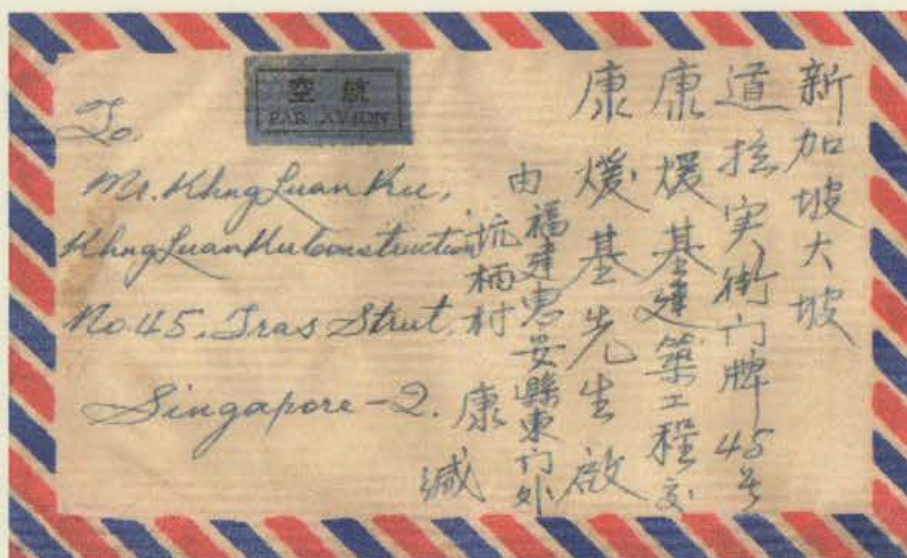 空航
PAR AVION
To,
Mr. Khng Luan Ku,
Khng Luan Ku Construction
No. 45, Tras Street,
Singapore-2.
新加坡大坡
道拉实街门牌45号
康煖基建築工程交
康煖基先生啟
由福建惠安縣東门外
坑柄村
康緘